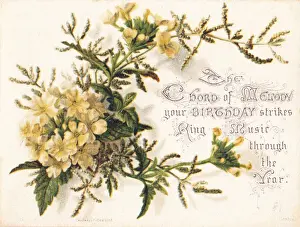 The
Chord of Melody
your BIRTHDAY strikes
Ring Music
through
the
Year.